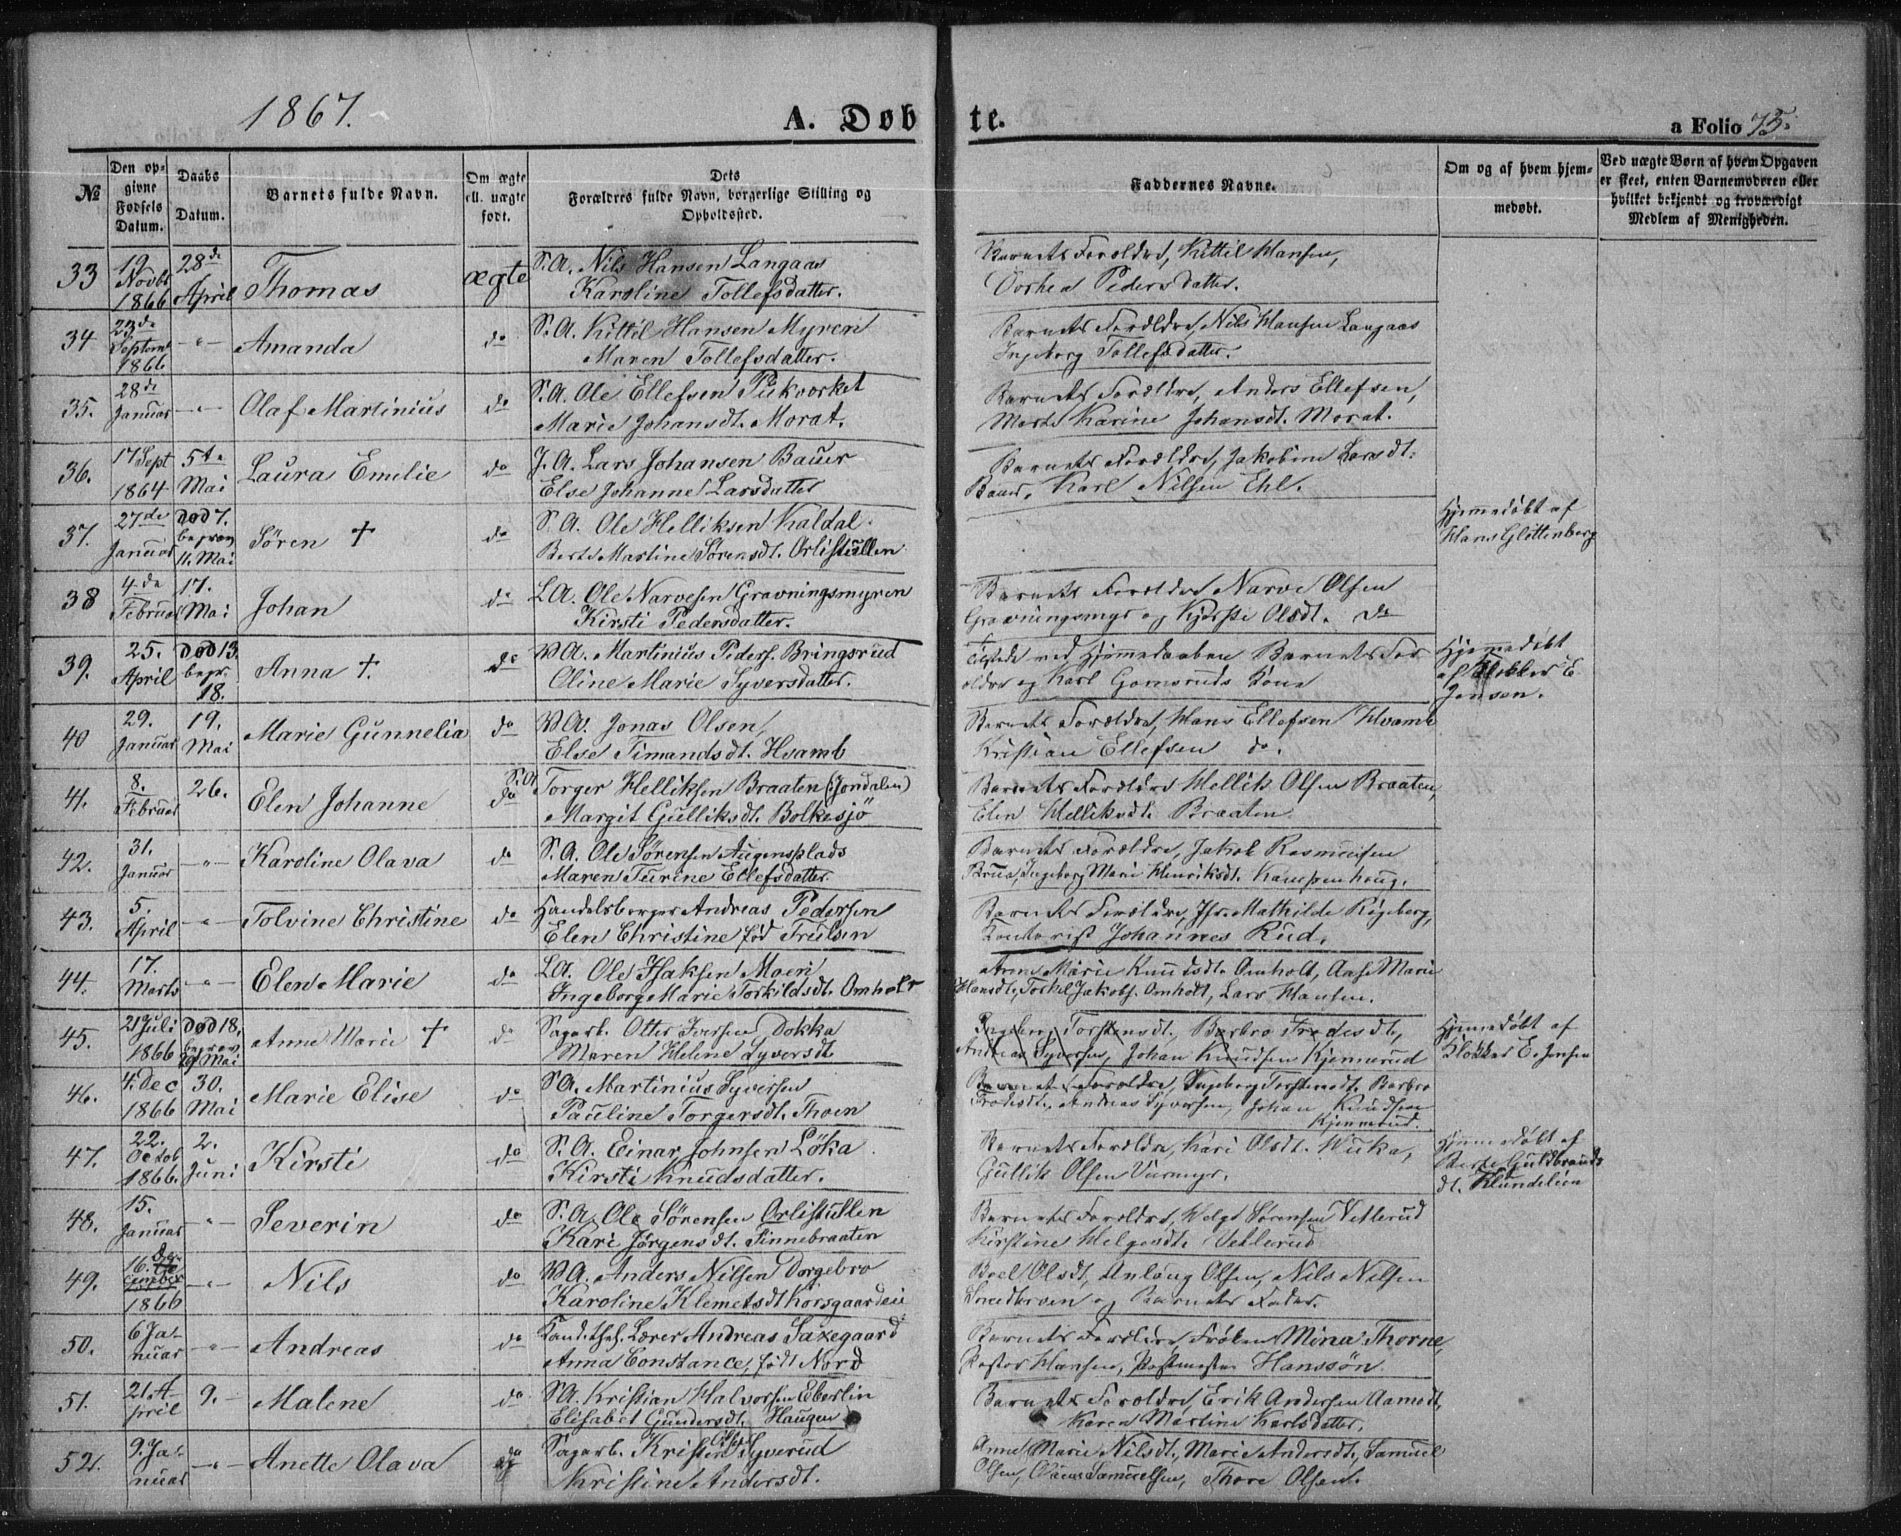 1867.
A. Døb
te.
a Folio 75.
№
Den op-
givne
Fødsels
Datum.
Daabs
Datum.
Barnets fulde Navn.
Om ægte
ell. uægte
født.
Dets
Forældres fulde Navn, borgerlige Stilling og
Opholdssted.
Faddernes Navne.
Om og af hvem hjem-
medøbt.
Ved uægte Børn af hvem Opgaven
er skeet, enten Barnemoderen eller
hvilket bekjendt og troværdigt
Medlem af Menigheden.
33 19 Novbr 1866 28de April Thomas ægte S.A. Nils Hansen Langaas
Karoline Tollefsdatter.
Barnets Forældre, Kittil Hansen,
Dorhea Pedersdatter.
34 23de Septemb 1866 -"- Amanda do S.A. Kittil Hansen Myren
Maren Tollefsdatter.
Barnets Forældre, Nils Hansen Langaas
Ingeborg Tollefsdatter.
35. 28de Januar -"- Olaf Martinius do S.A. Ole Ellefsen
Marie Johansdt. Morat.
Barnets Forældre, Anders Ellefsen,
Karine Johansdt. Morat.
36. 17 Sept 1864 5te Mai Laura Emilie do J.A. Lars Johansen Bauer
Else Johanne Larsdatter
Barnets Forældre, Jakobine Larsdt.
Bauer, Karl Nilsen Ehl.
37. 27de Januar død 7. begrav 11. Mai Søren † do S.A. Ole Helliksen Kaldal.
Berte Martine Sørensdt. Orlistullen
Hjemmedøbt af
Hans Glittenberg
38 4de Februar 17. Mai Johan do L.A. Ole Narvesen Gravningsmyren
Kirsti Pedersdatter.
Barnets Forældre Narve Olsen
Gravningsmyr og Kjersti Olsdt. do
39. 25. April død 13. begr. 18. Anna †. do V.A. Martinius Peders. Bringsrud
Oline Marie Syversdatter.
Tilstede ved Hjemmedaaben Barnets For
ældre og Karl Gamsruds Kone
Hjemmedøbt
af Klokker E.
Jensen.
40 29. Januar 19. Mai Marie Gunnelia do V.A. Jonas Olsen,
Else Simensdt. Hvamb
Barnets Forældre, Hans Ellefsen Hvamb
Kristian Ellefsen do.
41. 8. Februar 26. Elen Johanne do S.A. Torger Helliksen Braaten (Jondalen)
Margit Gulliksdt. Bolkesjö
Barnets Forældre Hellik Olsen Braaten,
Elen Helliksdt. Braaten.
42. 31. Januar -"- Karoline Olava do S.A. Ole Sørensen Augensplads
Maren Turine Ellefsdatter
Barnets Forældre, Jakob Rasmusen
Brua, Ingeborg Marie Henriksdt. Kampenhoug.
43. 5. April -"- Tolvine Christine do Handelsborger Andreas Pedersen
Elen Christine fød Trulsen
Barnets Forældre, Jfr. Mathilde Rigeberg,
Kontorist Johannes Rud.
44. 17. Marts -"- Elen Marie do L.A. Ole Isaksen Moen
Ingeborg Marie Torkildsdt. Omholt
Anne Marie Knudsdt. Omholt, Aase Marie
Hansdt, Torkel Jakobs. Omholt, Lars Hansen.
45. 21 Juli 1866 død 18, begrav 29 Mai Anne Marie † do Sagarb. Otter Iversen Dokka
Maren Helene Syversdt
Ingeborg Torstensdt, Barbro Frodesdt,
Andreas Syversen, Johan Knudsen Kjennerud
Hjemmedøbt af
Klokker E. Jensen
46. 4. Dec 1866 30. Mai Marie Elise do S.A. Martinius Syversen
Pauline Torgersdt. Thoen
Barnets Forældre, Ingeborg Torstensdt. Barbro
Frodesdt, Andreas Syversen, Johan Knudsen
Kjennerud.
47. 22. Octob 1866. 2. Juni Kirsti do S.A. Einar Johnsen Löka
Kirsti Knudsdatter.
Barnets Forældre, Kari Olsdt.
Gullik Olsen
Hjemmedøbt af
Berte Guldbrands
dt. Klundelien
48. 15. Januar -"- Severin do S.A. Ole Sørensen Orlistullen
Kari Jørgensdt. Finnebraaten
Barnets Forældre, Helge Sørensen Vetlerud
Kirstine Helgesdt. Vetlerud
49. 16. December 1866 -"- Nils do V.A. Anders Nilsen Dorgebro
Karoline Klemetsdt Korsgaardeie
Boel Olsdt, Anlaug Olsen, Nils Nilsen
og Barnets Fader.
50. 6 Ja- nuar -"- Andreas do Kand. thol. Lærer Andreas Saxegaard
Anna Constance, født Nord
Barnets Forældre, Frøken Mina Thorne,
Pastor Hansen, Postmester Hanssön.
51. 21. A- pril 9. - Malene do S.A. Kristian Halvorsen Eberlin
Elisabet Gundersdt. Haugen
Barnets Forældre, Erik Andersen Aamodt,
Karen Martine Karlsdatter.
52. 9. Ja- nuar -"- Anette Olava do Sagarb. Kristen Olsen Syverud
Kristine Andersdt.
Anne Marie Nilsdt, Marie Andersdt, Samuel
Olsen, Samuelsen, Thore Olsen.